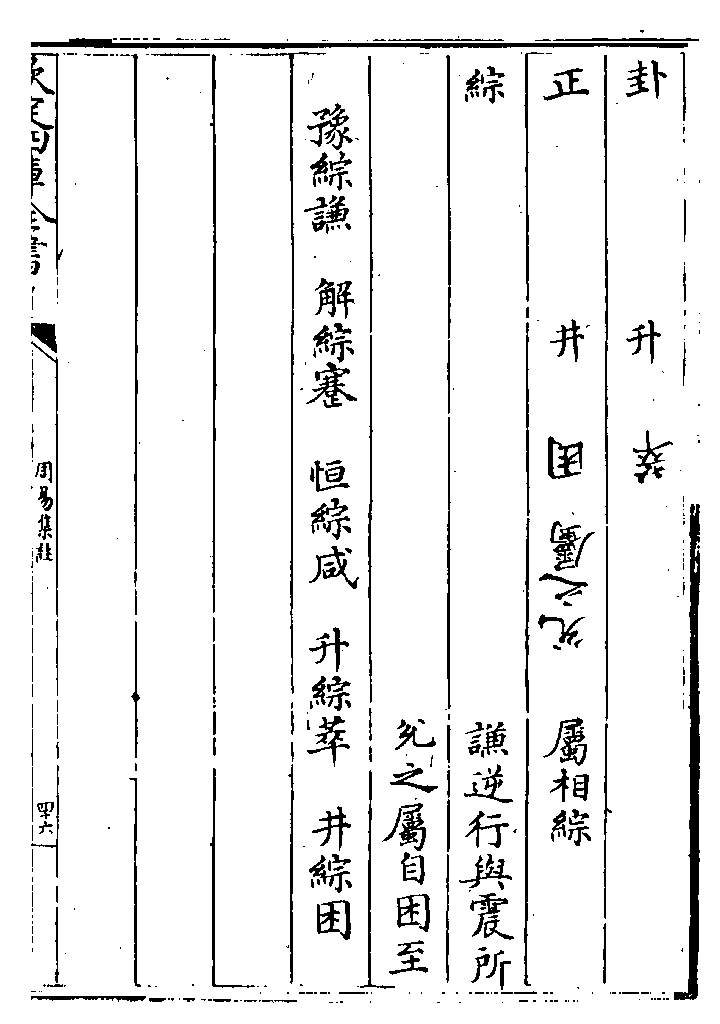 卦 升 萃
正 井 困 兌之屬 屬相綜
綜 謙逆行與震所
兌之屬自困至
豫綜謙 解綜蹇 恒綜咸 升綜萃 井綜困
欽定四庫全書 周易集註 四十六